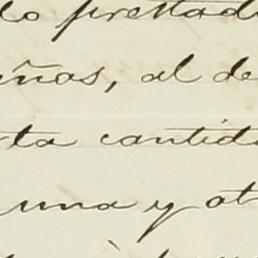 lo prestad
iñas, al de
ta cantid
una y ot